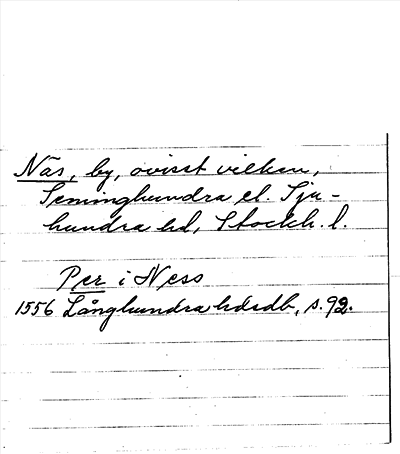 Näs, by, ovisst vilken,
Seminghundra el. Sju-
hundra hd, Stockh. l.
Per i Ness
1556 Långhundra hdsdb, s. 92.